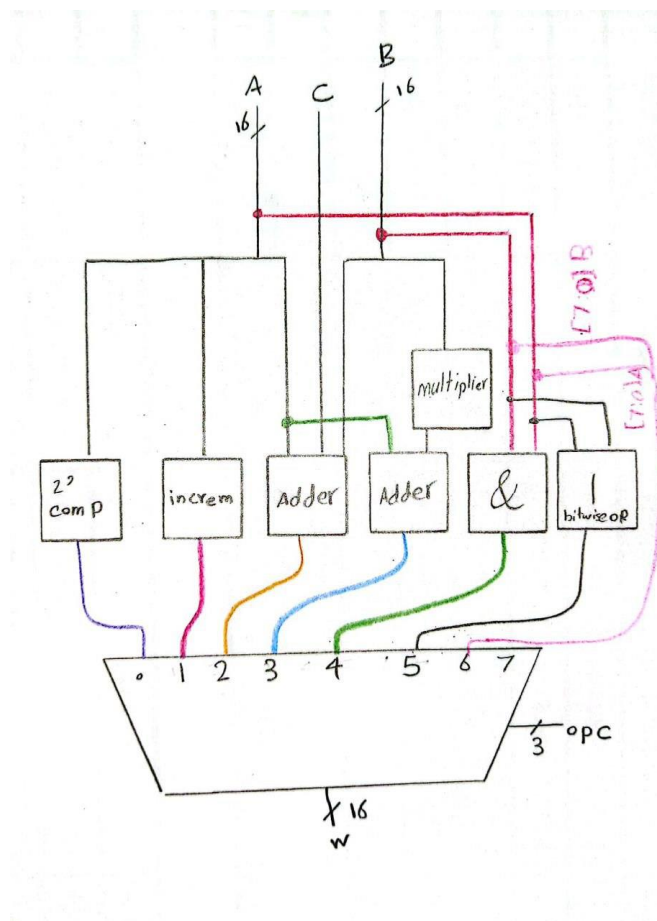 A
C
B
16
16
[7:0] B
[7:0]A
multiplier
2'
comp
increm
Adder
Adder
&
|
bitwise OR
0
1
2
3
4
5
6
7
opc
3
16
w